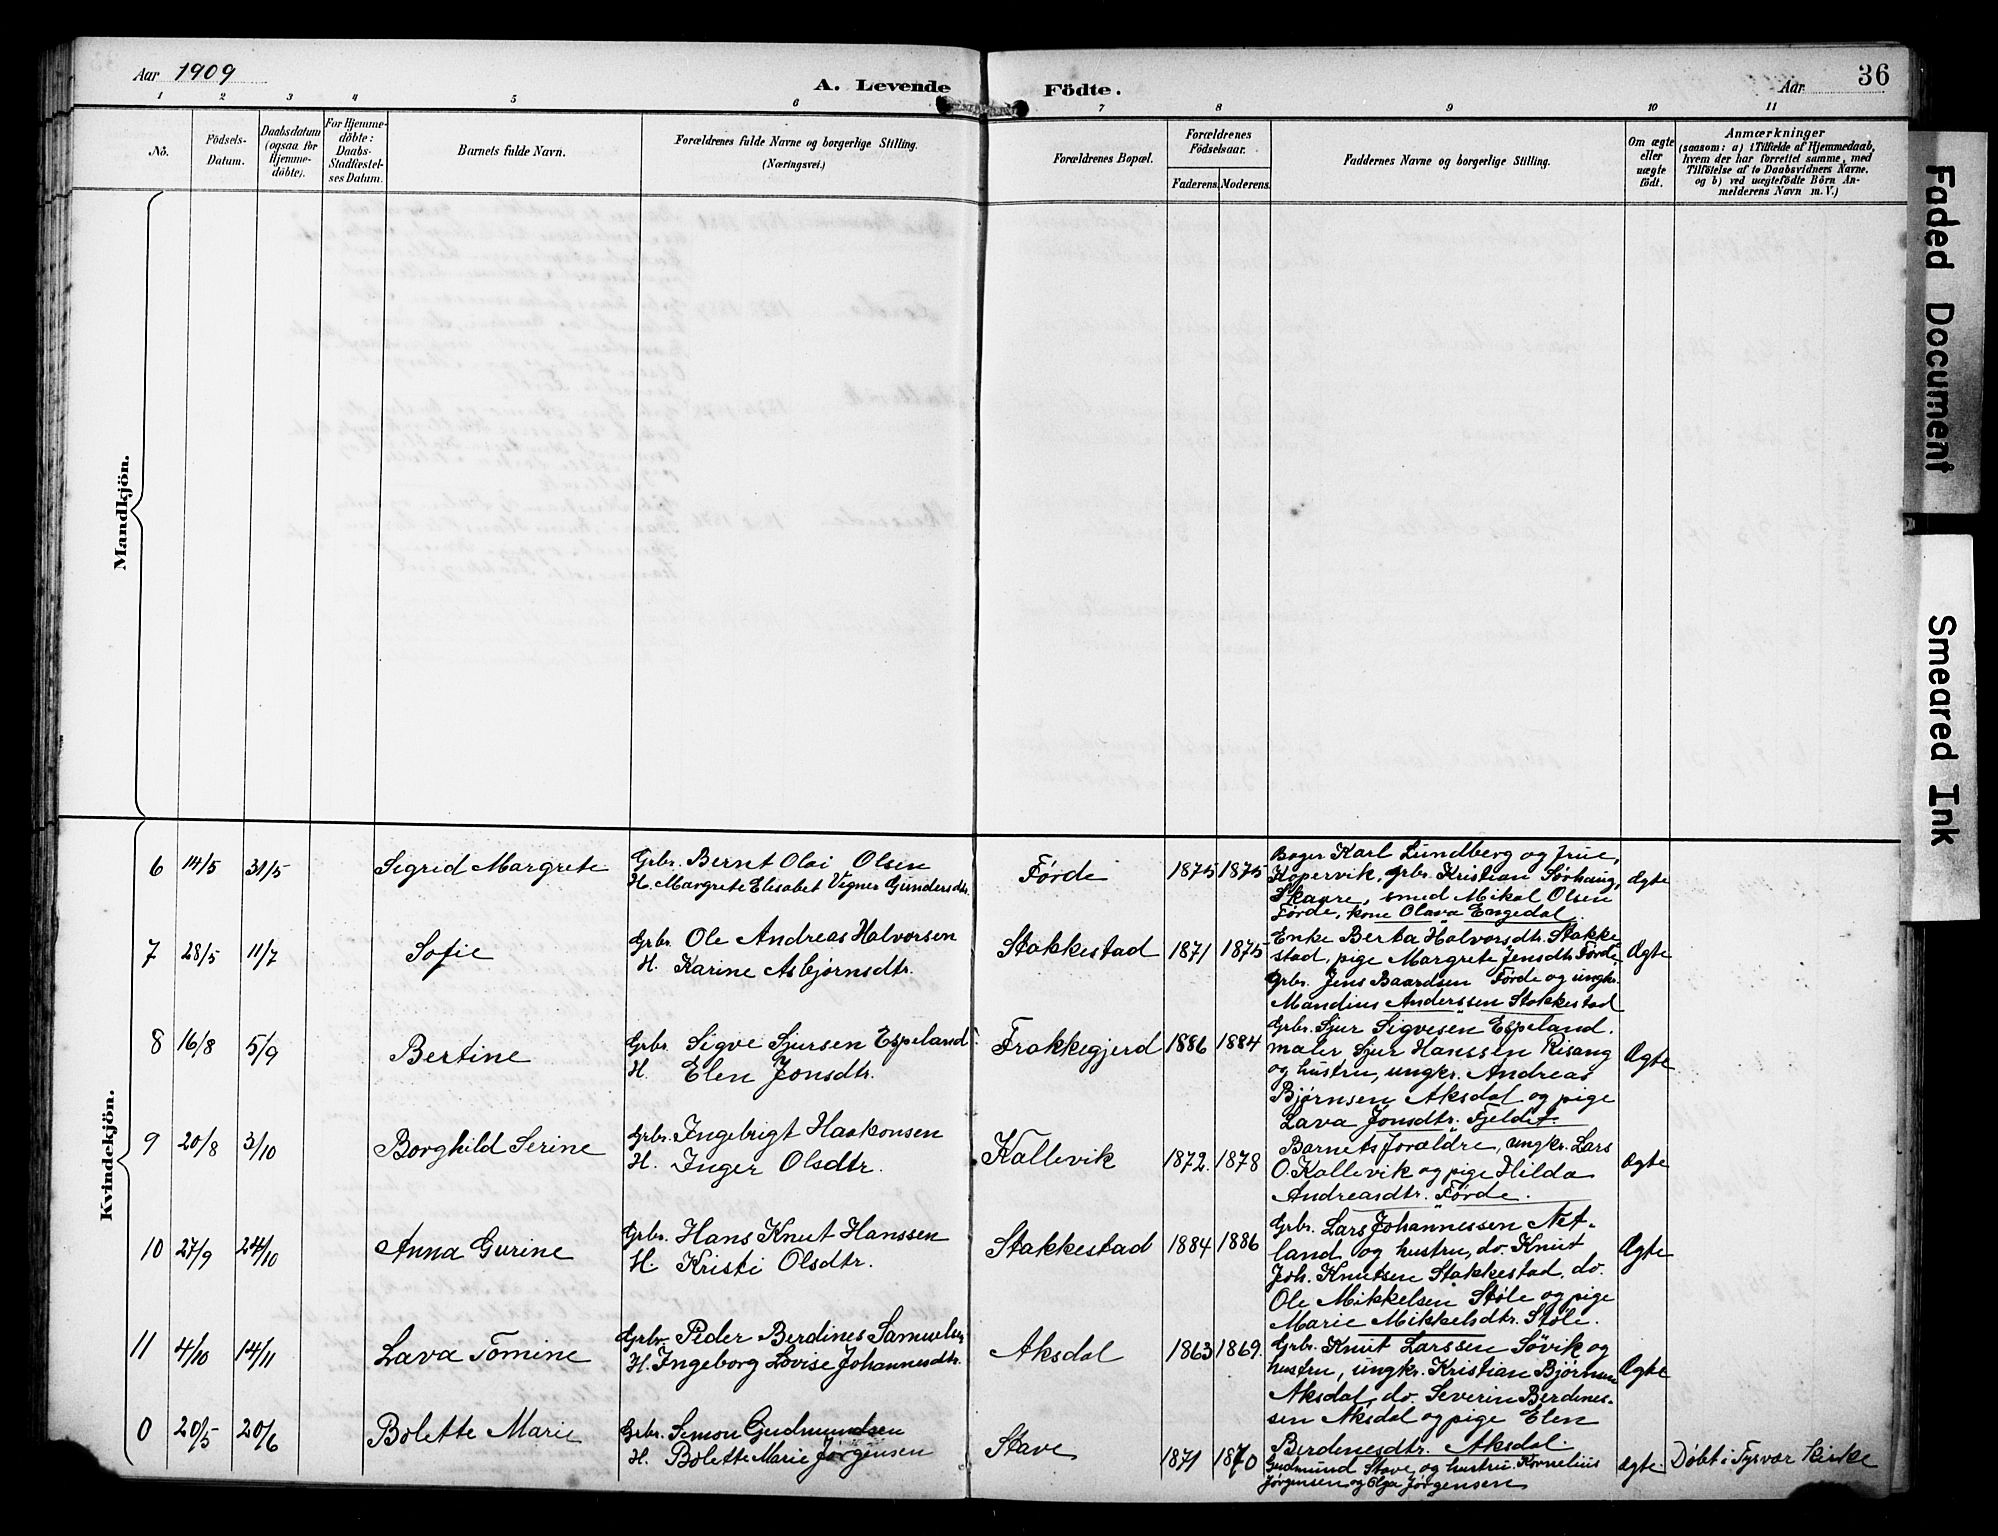 Aar 1909
A. Levende Födte.
Aar
36
1 2 3 4 5 6 7 8 9 10 11
No.
Födsels-
Datum.
Daabsdatum
(ogsaa for
Hjemme-
döbte).
For Hjemme-
döbte:
Daabs-
Stadfæstel-
ses Datum.
Barnets fulde Navn.
Forældrenes fulde Navne og borgerlige Stilling.
(Næringsvei.)
Forældrenes Bopæl.
Forældrenes
Födselsaar.
Faderens. Moderens.
Faddernes Navne og borgerlige Stilling.
Om ægte
eller
uægte
födt.
Anmærkninger
(saasom: a) i Tilfælde af Hjemmedaab,
hvem der har forrettet samme, med
Tilföielse af to Daabsvidners Navne.
og b) ved uægtefödte Börn An-
melderens Navn m. V.)
Mandkjön.
Kvindekjön.
6 14/5 31/5 Sigrid Margrete
Grbr. Bernt Olai Olsen
H. Margrete Elisabet Vigner Gundersdtr.
Förde 1875 1875
Bager Karl Lundberg og frue,
Kopervik, grbr. Kristian Sørhaug,
Skaare, smed Mikal Olsen
Førde, kone Olava Engedal
Ægte
7 28/5 11/7 Sofie
Grbr. Ole Andreas Halvorsen
H. Karine Asbjørnsdtr.
Stakkestad 1871 1875
Enke Berta Halvorsdtr. Stakke
stad, pige Margrete Jensdtr. Førde
Grbr. Jens Baardsen Førde og ungkr.
Mandius Anderssen Stakkestad
Ægte
8 16/8 5/9 Bertine
Grbr. Sigve Sjursen Espeland
H. Elen Jonsdtr.
Frakkegjerd 1886 1884
Grbr. Sjur Sigvesen Espeland.
maler Sjur Hanssen Risang
og hustru, ungkr. Andreas
Bjørnsen Aksdal og pige
Lava Jonsdtr. Fjeldet.
Ægte
9 20/8 3/10 Borghild Serine
Grbr. Ingebrigt Haakonsen
H. Inger Olsdtr.
Kallevik 1872. 1878
Barnets forældre, ungkr. Lars
O. Kallevik og pige Hilda
Andreasdtr. Førde.
Ægte
10 27/9 24/10 Anna Gurine
Grbr. Hans Knut Hanssen
H. Kristi Olsdtr.
Stakkestad 1884 1886
Grbr. Lars Johannessen Net-
land og hustru, do. Knut
Joh. Knutsen Stakkestad, do.
Ole Mikkelsen Støle og pige
Marie Mikkelsdtr. Støle.
Ægte
11 4/10 14/11 Lava Tomine
Grbr. Peder Berdines Samuelsen
H. Ingeborg Lovise Johannesdtr.
Aksdal 1863 1869.
Grbr. Knut Larssen Søvik og
hustru, ungkr. Kristian Bjørnsen
Aksdal, do. Severin Berdines-
sen Aksdal og pige Elen
Berdenesdtr. Aksdal.
Ægte
0 20/5 20/6 Bolette Marie
Grbr. Simon Gudmundsen
H. Bolette Marie Jørgensen
Stave 1871 1870
Gudmund Stave og hustru. Kornelius
Jørgensen og Olga Jørgensen
Ægte. Døbt i Tysvær Kirke
Faded Document
Smeared Ink